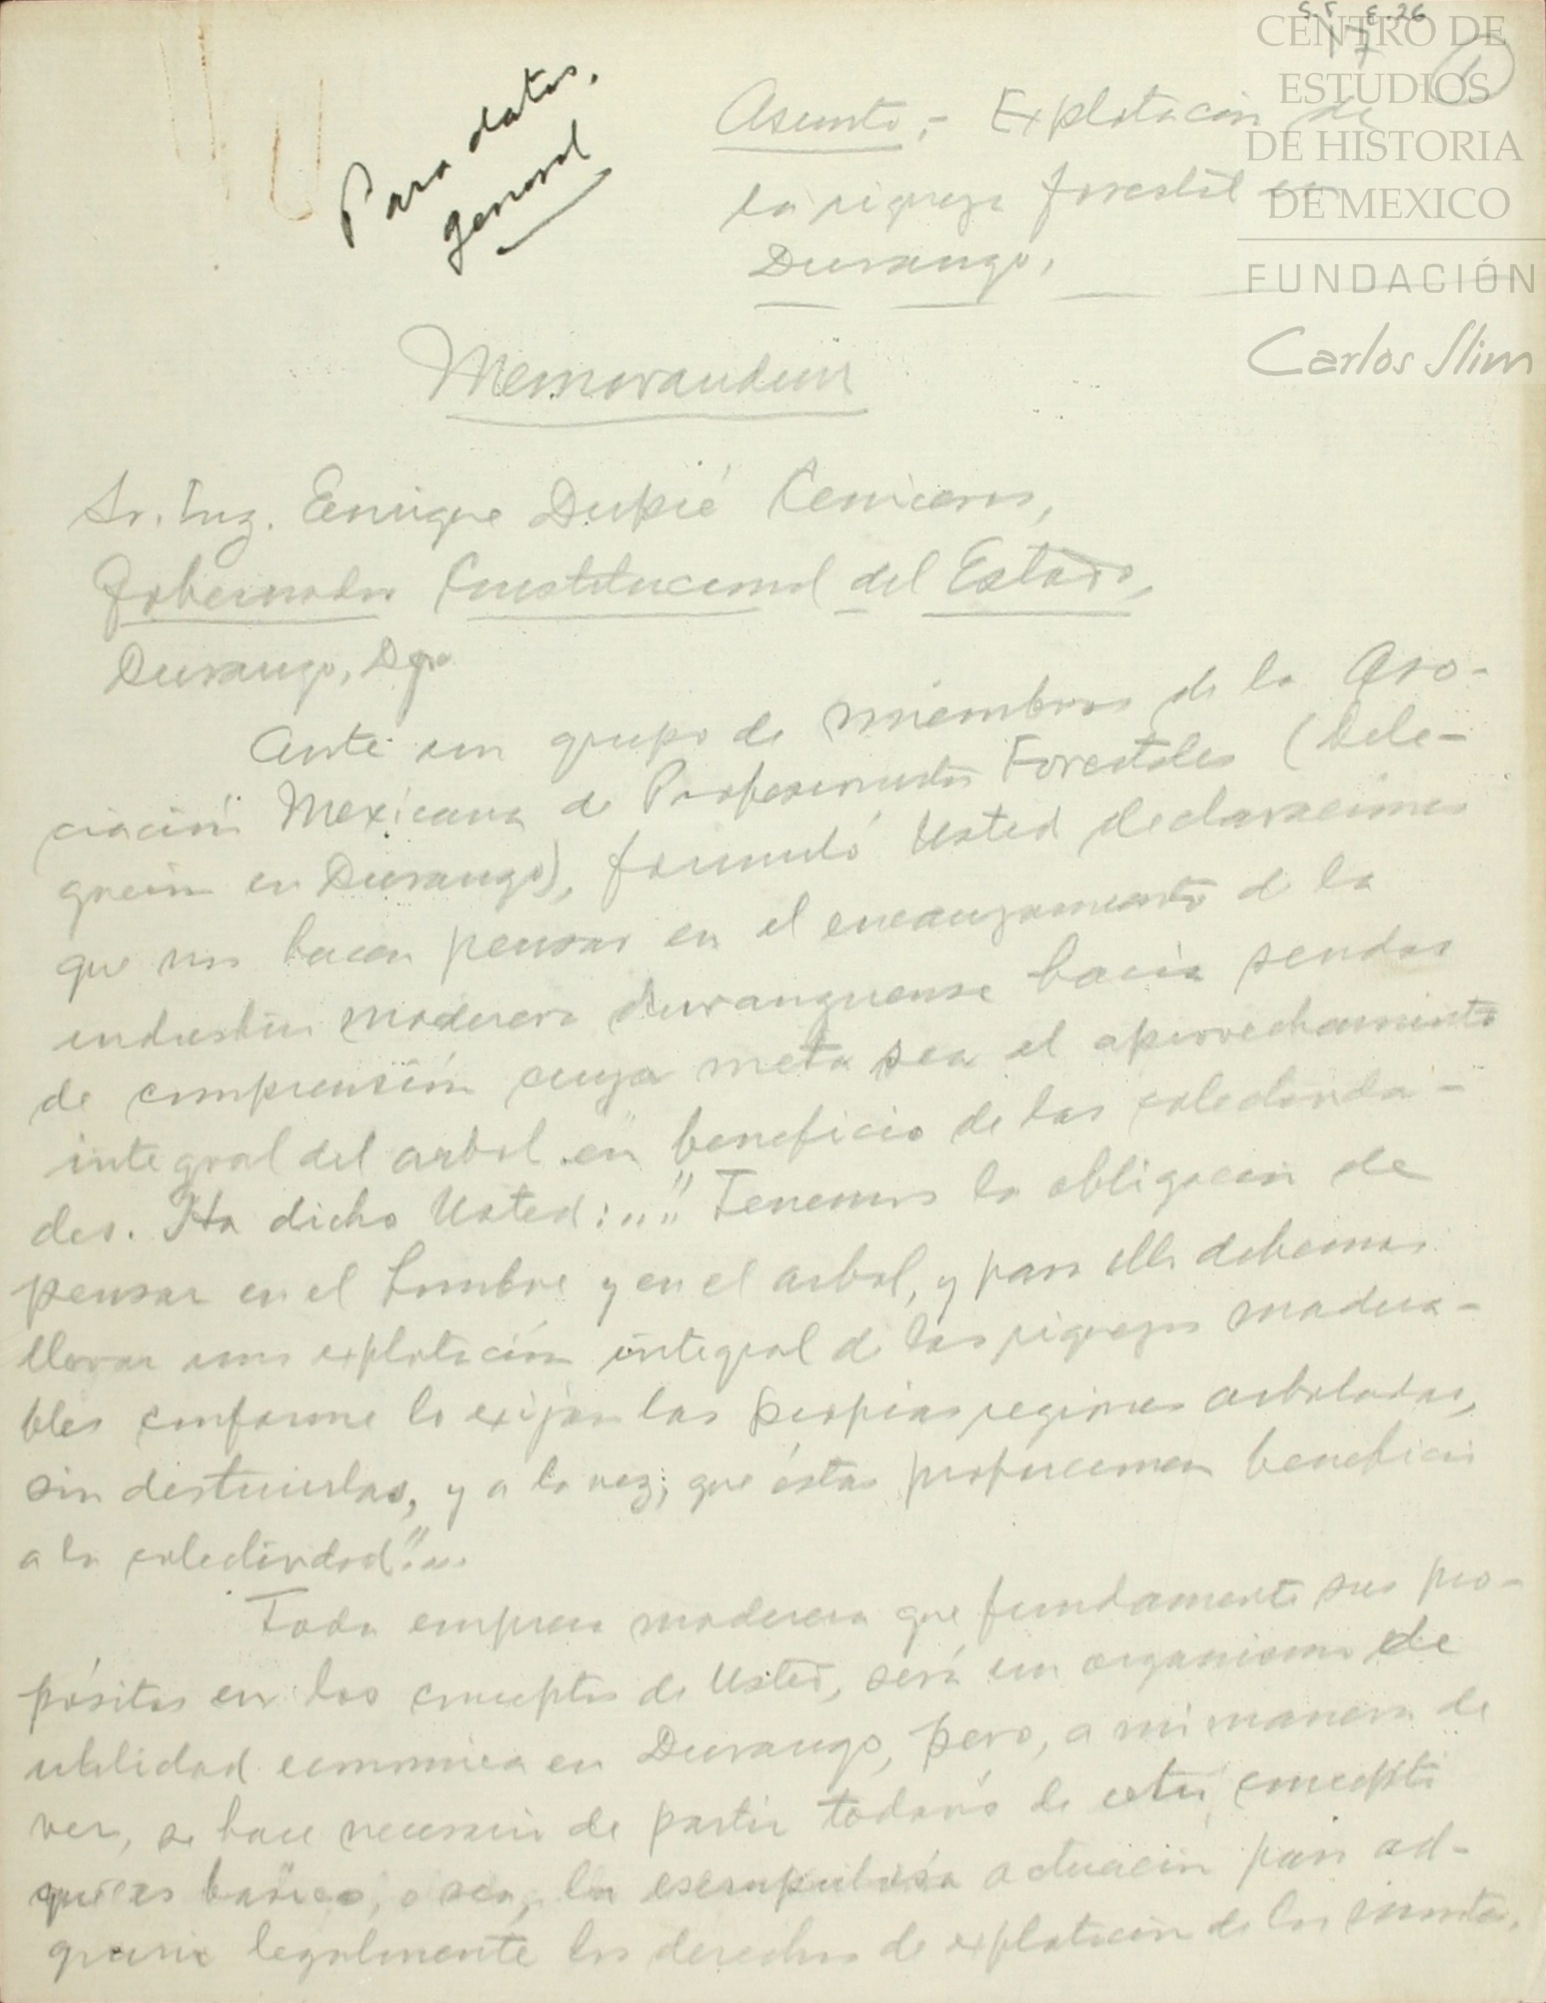 S.T. E.26
17
1
CENTRO DE
ESTUDIOS
DE HISTORIA
DE MEXICO
FUNDACIÓN
Carlos Slim
Para datos,
general
Asunto,- Explotación de
la riqueza forestal en
Durango,
Memorandum
Sr. Ing. Enrique Dupré Ceniceros,
Gobernador Constitucional del Estado,
Durango, Dgo
Ante un grupo de miembros de la Aso-
ciación Mexicana de Profesionistas Forestales (Dele-
gación en Durango), formuló Usted declaraciones
que nos hacen pensar en el encauzamiento de la
industria maderera duranguense hacia sendas
de comprensión cuya meta sea el aprovechamiento
integral del arbol en beneficio de las colectivida-
des. Ha dicho Usted:..." Tenemos la obligación de
pensar en el hombre y en el arbol, y para ello debemos
llevar una explotación integral de las riquezas madera-
bles conforme lo exijan las propias regiones arboladas,
sin destruirlas, y a la vez; que éstas proporcionen beneficio
a la colectividad"...
Toda empresa maderera que fundamente sus pro-
pósitos en los conceptos de Usted, será un organismo de
utilidad economica en Durango, pero, a mi manera de
ver, se hace necesario de partir todavía de otro concepto
que es básico, o sea, la escrupulosa actuación para ad-
quirir legalmente los derechos de explotación de los montes,